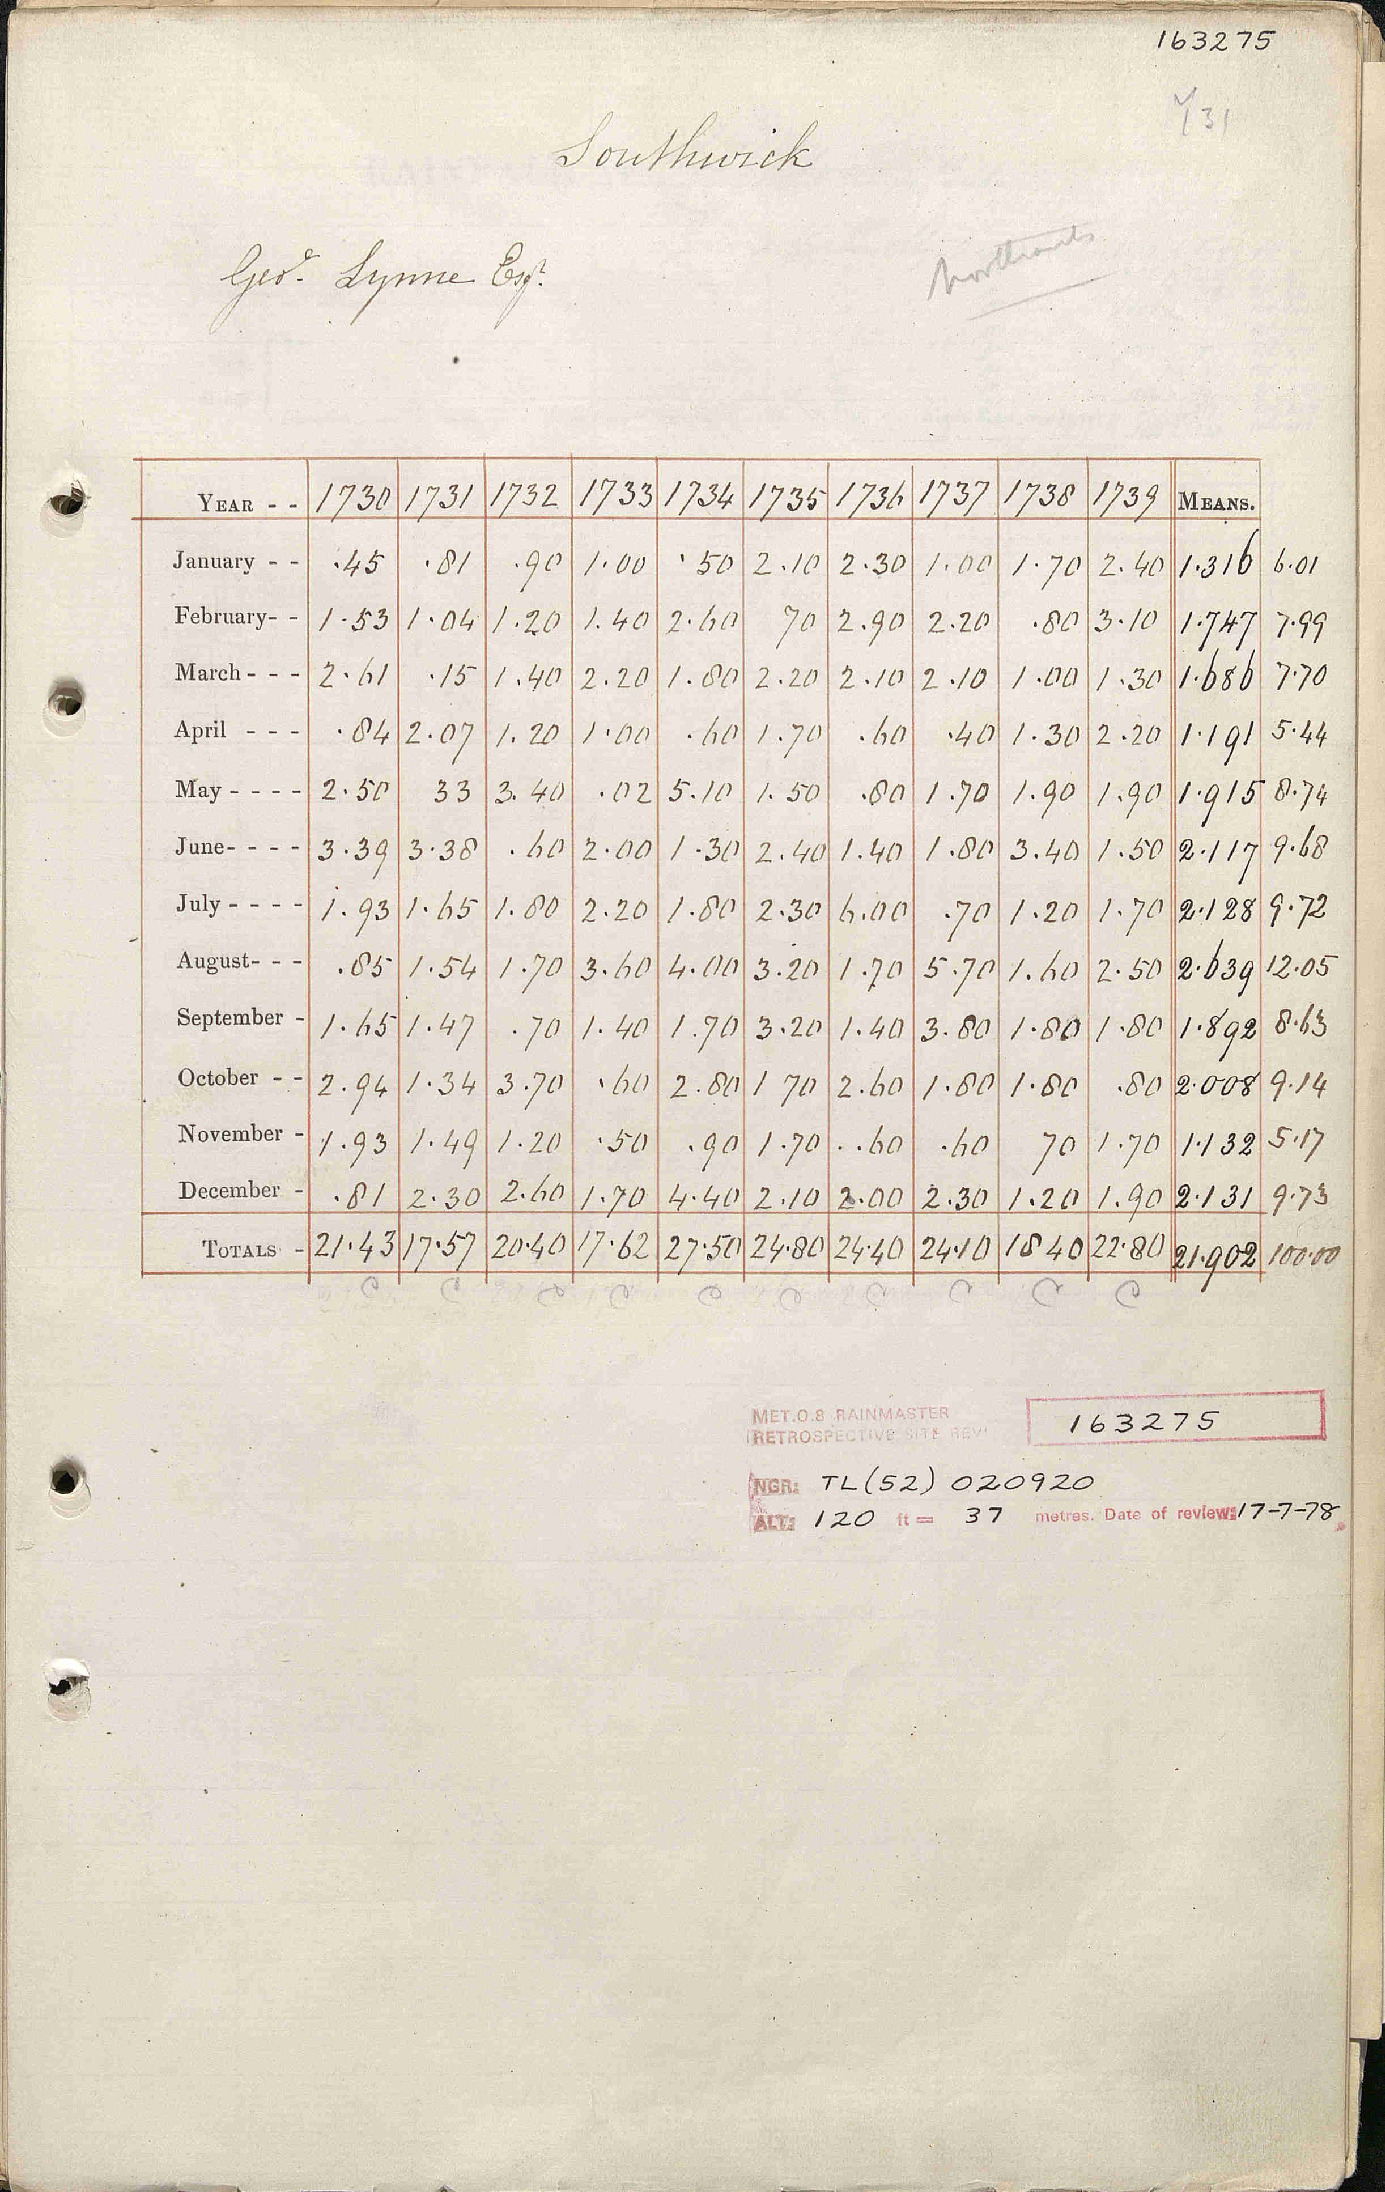 163275
Southwick
Geo. Lynne Esqr.
YEAR - - 1730 1731 1732 1733 1734 1735 1736 1737 1738 1739 MEANS.
January - - .45 .81 .90 1.00 .50 2.10 2.30 1.00 1.70 2.40 1.316 6.01
February- - 1.53 1.04 1.20 1.40 2.60 70 2.90 2.20 .80 3.10 1.747 7.99
March - - - 2.61 .15 1.40 2.20 1.80 2.20 2.10 2.10 1.00 1.30 1.686 7.70
April - - - .84 2.07 1.20 1.00 .60 1.70 .60 .40 1.30 2.20 1.191 5.44
May - - - - 2.50 33 3.40 .02 5.10 1.50 .80 1.70 1.90 1.90 1.915 8.74
June- - - - 3.39 3.38 .60 2.00 1.30 2.40 1.40 1.80 3.40 1.50 2.117 9.68
July - - - - 1.93 1.65 1.80 2.20 1.80 2.30 6.00 .70 1.20 1.70 2.128 9.72
August- - - .85 1.54 1.70 3.60 4.00 3.20 1.70 5.70 1.60 2.50 2.639 12.05
September - 1.65 1.47 .70 1.40 1.70 3.20 1.40 3.80 1.80 1.80 1.892 8.63
October - - 2.94 1.34 3.70 .60 2.80 1 70 2.60 1.80 1.80 .80 2.008 9.14
November - 1.93 1.49 1.20 .50 .90 1.70 .60 .60 70 1.70 1.132 5.17
December - .81 2.30 2.60 1.70 4.40 2.10 2.00 2.30 1.20 1.90 2.131 9.73
TOTALS - 21.43 17.57 20.40 17.62 27.50 24.80 24.40 24.10 18 40 22.80 21.902 100.00
MET.O.8 RAINMASTER
RETROSPECTIVE SITE REVI
163275
NGR: TL(52) 020920
ALT: 120 ft = 37 metres. Date of review: 17-7-78